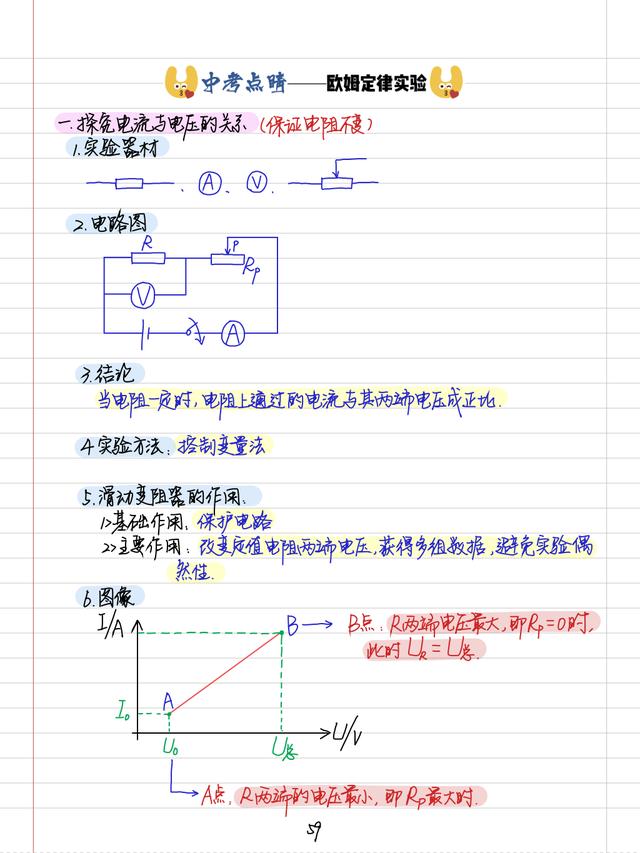 中考点睛——欧姆定律实验
一.探究电流与电压的关系(保证电阻不变)
1.实验器材
、A、V、
2.电路图
R
P
Rp
V
A
3.结论
当电阻一定时,电阻上通过的电流与其两端电压成正比.
4.实验方法:控制变量法
5.滑动变阻器的作用.
1>基础作用:保护电路
2>主要作用:改变定值电阻两端电压,获得多组数据,避免实验偶
然性.
6.图像
I/A
B
B点:R两端电压最大,即Rp=0时,
此时UR=U总.
A
I0
U0
U总
U/V
A点,R两端的电压最小,即Rp最大时.
59